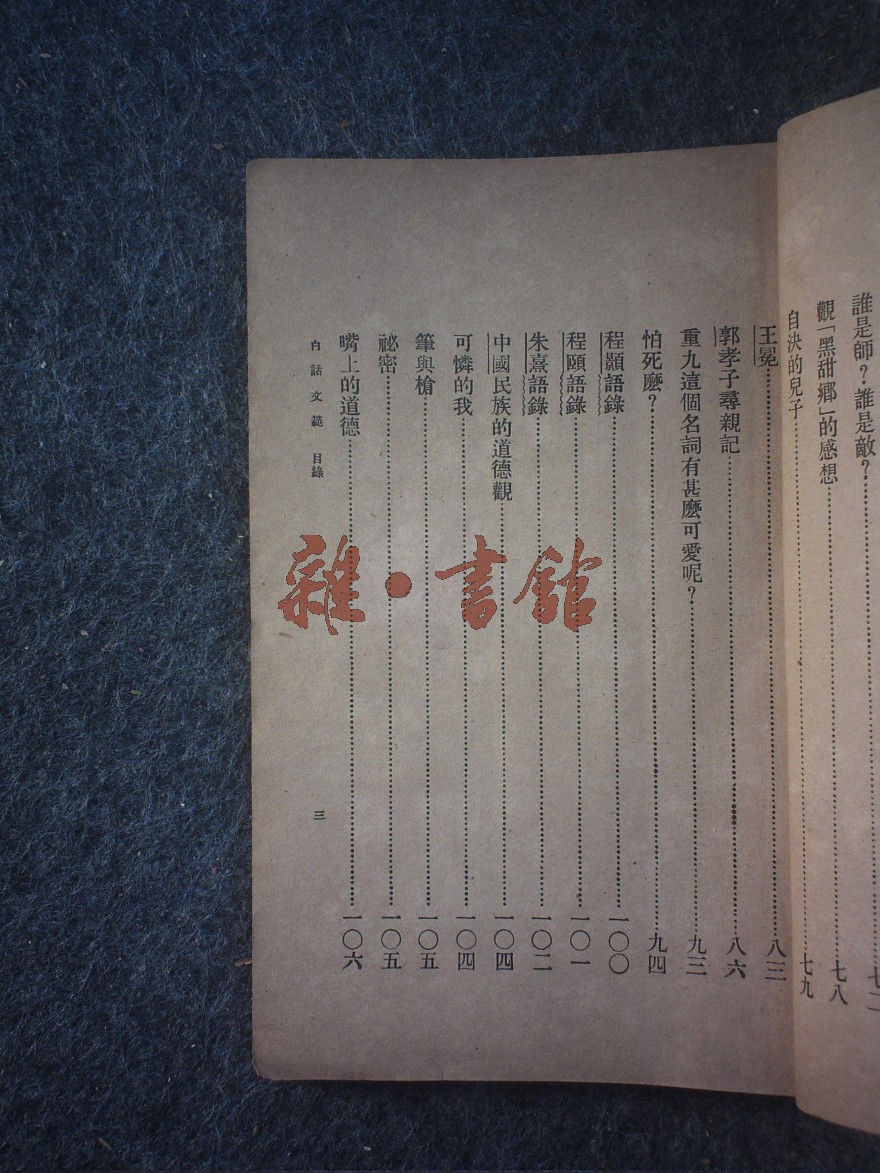 誰是師？誰是敵？⋯⋯七二
觀「黑甜鄉」的感想⋯⋯七八
自決的兒子⋯⋯七九
王冕⋯⋯八三
郭孝子尋親記⋯⋯八六
重九這個名詞有甚麽可愛呢？⋯⋯九三
怕死麽？⋯⋯九四
程顥語錄⋯⋯一〇〇
程頤語錄⋯⋯一〇一
朱熹語錄⋯⋯一〇二
中國民族的道德觀⋯⋯一〇四
可憐的我⋯⋯一〇四
筆與槍⋯⋯一〇五
祕密⋯⋯一〇五
嘴上的道德⋯⋯一〇六
白話文範 目錄 三
雜·書館